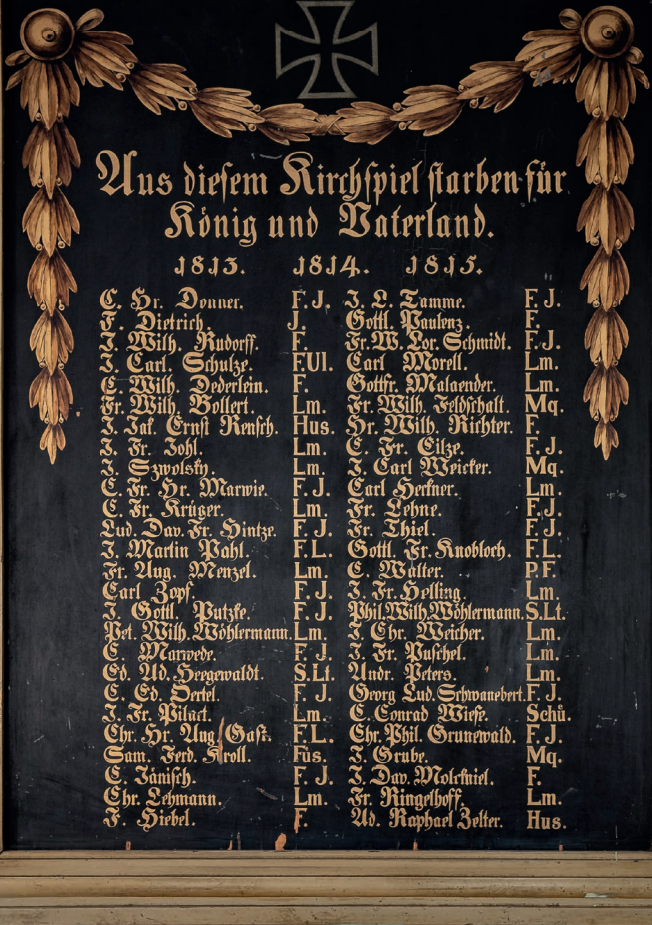 Aus diesem Kirchspiel starben für
König und Vaterland.
1813. 1814. 1815.
C. Hr. Donner. F. J.
F. Dietrich. J.
J. Wilh. Rudorff. F.
J. Carl. Schulze. F.Ul.
C. Wilh. Dederlein. F.
Fr. Wilh. Bollert. Lm.
J. Jak. Ernst Rensch. Hus.
J. Fr. Johl Lm.
J. Szwolsky. Lm.
C. Fr. Hr. Marwie. F. J.
C. Fr. Krüger. Lm.
Lud. Dav. Fr. Hintze. F. J.
J. Martin Pahl. F.L.
Fr. Aug. Menzel. Lm.
Carl Zopf. F. J.
J. Gottl. Putzke. F. J.
Pet. Wilh. Wöhlermann. Lm.
C. Marwede. F. J.
Ed. Ad. Heegewaldt. S.Lt.
C. Ed. Oertel. F. J.
J. Fr. Pilact. Lm.
Chr. Hr. Aug. Gast. F.L.
Sam. Ferd. Kroll. Füs.
C. Jänisch. F. J.
Chr. Lehmann. Lm.
F. Hiebel. F.
J. L. Tamme. F.J.
Gottl. Paulenz. F.
Fr. W. Lor. Schmidt. F.J.
Carl Morell. Lm.
Gottfr. Malaender. Lm.
Fr. Wilh. Feldschalt. Mq.
Hr. Wilh. Richter. F.
C. Fr. Cilze. F.J.
J. Carl Weicker. Mq.
Carl Herkner. Lm.
Fr. Lehne. F.J.
Fr. Thiel. F.J.
Gottl. Fr. Knobloch. F.L.
C. Walter. P.F.
J. Fr. Helling. Lm.
Phil. Wilh. Wöhlermann. S.Lt.
J. Chr. Weicher. Lm.
J. Fr. Puschel. Lm.
Andr. Peters. Lm.
Georg Lud. Schwanebert. F. J.
C. Conrad Wiese. Schü.
Chr. Phil. Grunewald. F. J.
J. Grube. Mq.
J. Dav. Molckniel. F.
Fr. Ringelhoff. Lm.
Ad. Raphael Zelter. Hus.